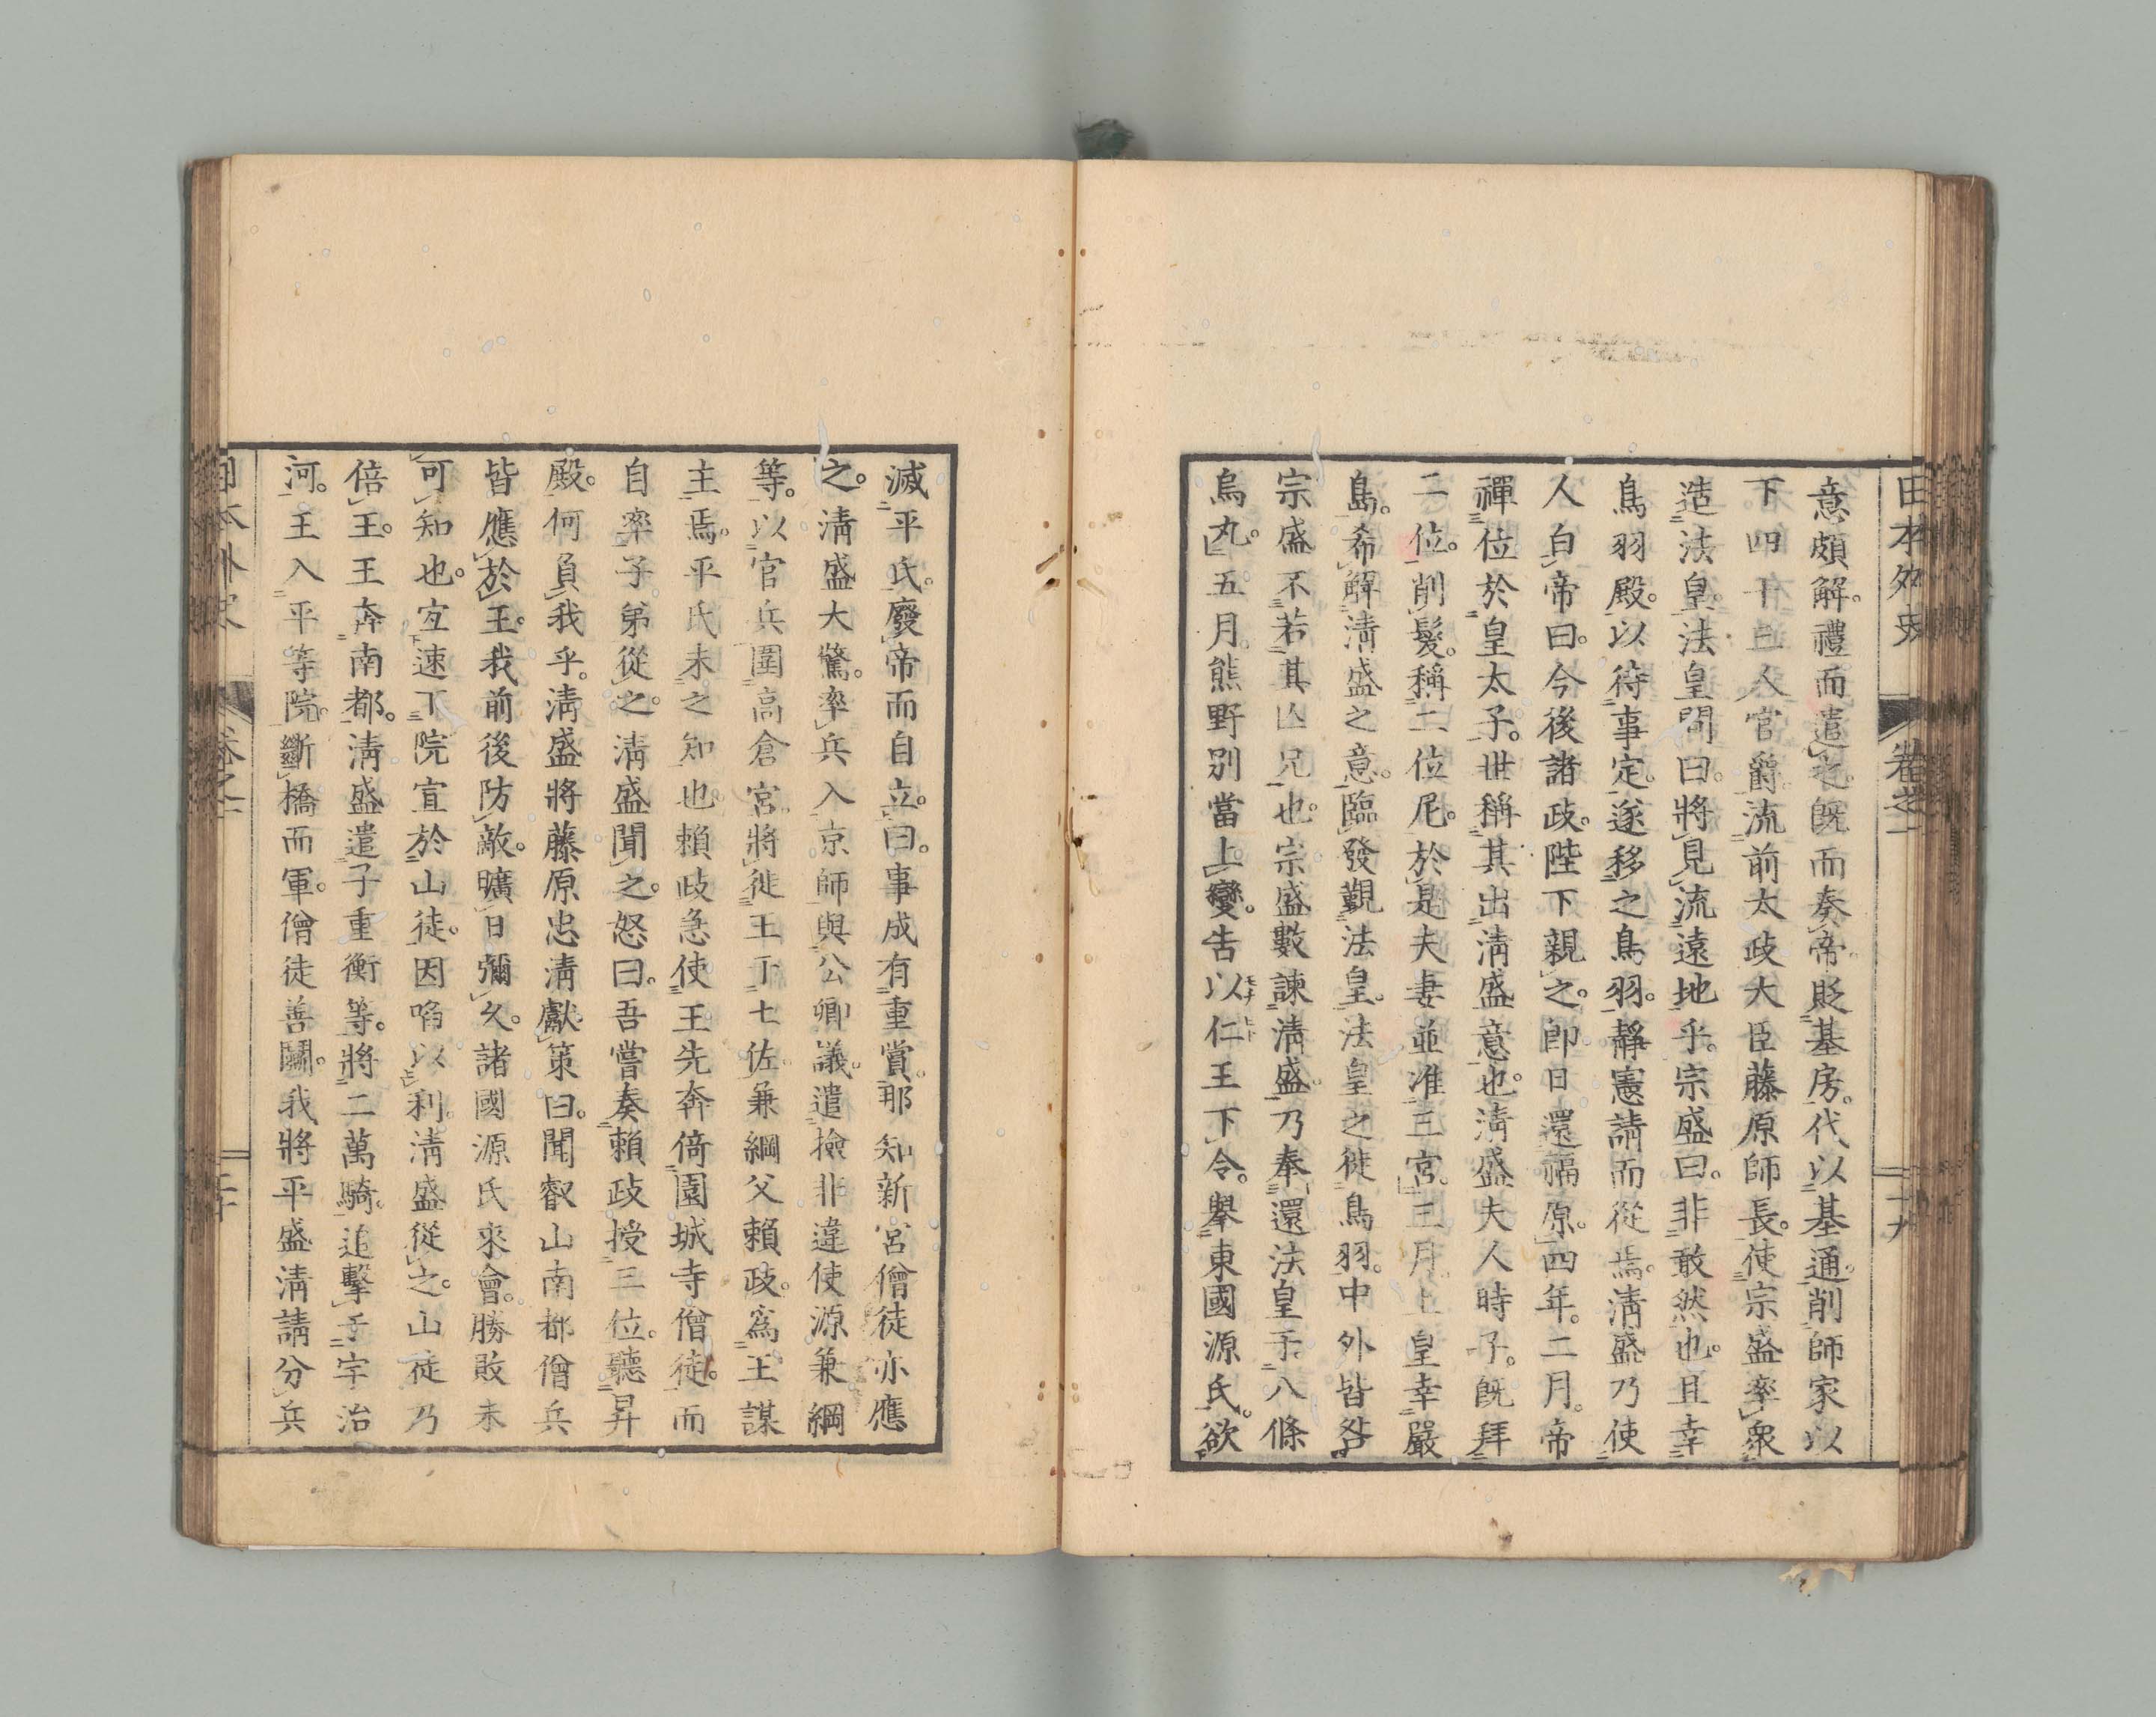 日本外史 卷之一 二十九
意頗解。禮而遣之。既而奏帝貶基房。代以基通。削師家以
下四十三人官爵。流前太政大臣藤原師長。使宗盛率衆
造法皇。法皇問曰。將見流遠地乎。宗盛曰。非敢然也。且幸
鳥羽殿。以待事定。遂移之鳥羽。靜憲請而從焉。淸盛乃使
人白帝曰。今後諸政。陛下親之。卽日還福原。四年。二月。帝
禪位於皇太子。世稱其出淸盛意也。淸盛夫人時子。既拜
二位。削髮。稱二位尼。於是夫妻並准三宮。三月。上皇幸嚴
島。希解淸盛之意。臨發覲法皇。法皇之徙鳥羽。中外皆咎
宗盛不若其亡兄也。宗盛數諫淸盛。乃奉還法皇于八條
烏丸。五月。熊野別當上變。告以仁王下令。擧東國源氏。欲
滅平氏。廢帝而自立。曰。事成有重賞。那知新宮僧徒亦應
之。淸盛大驚。率兵入京師。與公卿議。遣撿非違使源兼綱
等。以官兵圍高倉宮。將徙王于土佐。兼綱父賴政。爲王謀
主焉。平氏未之知也。賴政急使王先奔倚園城寺僧徒。而
自率子弟從之。淸盛聞之。怒曰。吾嘗奏賴政授三位。聽昇
殿。何負我乎。淸盛將藤原忠淸獻策曰。聞叡山南都僧兵
皆應於王。我前後防敵。曠日彌久。諸國源氏來會。勝敗未
可知也。宜速下院宣於山徒。因啗以利。淸盛從之。山徒乃
倍王。王奔南都。淸盛遣子重衡等。將二萬騎。追擊于宇治
河。王入平等院。斷橋而軍。僧徒善鬭。我將平盛淸請分兵
日本外史 卷之一 三十